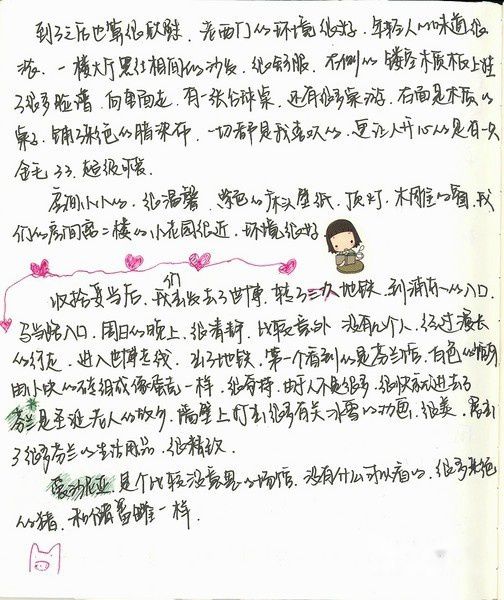 到了之后也算很欣慰. 老西门的环境很好. 年轻人的味道很
浓. 一楼大厅黑红相间的沙发. 很舒服. 右侧的镂空木质板上挂
了很多脸谱. 向里面走. 有一张台球桌. 还有很多桌游. 右面是木质的
桌子. 铺了彩色的暗深布. 一切都是我喜欢的. 更让人开心的是有一只
金毛 33. 超级可爱.
房间小小的. 很温馨. 紫色的床头壁纸. 顶灯. 木雕的窗. 我
们的房间离二楼的小花园很近. 环境很好
收拾妥当后. 我们出发去了世博. 转了三次地铁. 到浦东的入口.
马当路入口. 周日的晚上. 很清静. 比较意外 没有几个人. 经过漫长
的行走. 进入世博专线. 出了地铁. 第一个看到的是芬兰馆. 白色的
由小块的砖组成像蛋壳一样. 很奇特. 由于人不是很多. 很快就进去了
芬兰是圣诞老人的故乡. 隔壁上打出很多有关冰雪的动画. 很美. 展出
了很多芬兰的生活用品. 很精致.
爱沙尼亚 是个比较没意思的场馆. 没有什么可以看的. 很多彩色
的猪. 和储蓄罐一样.